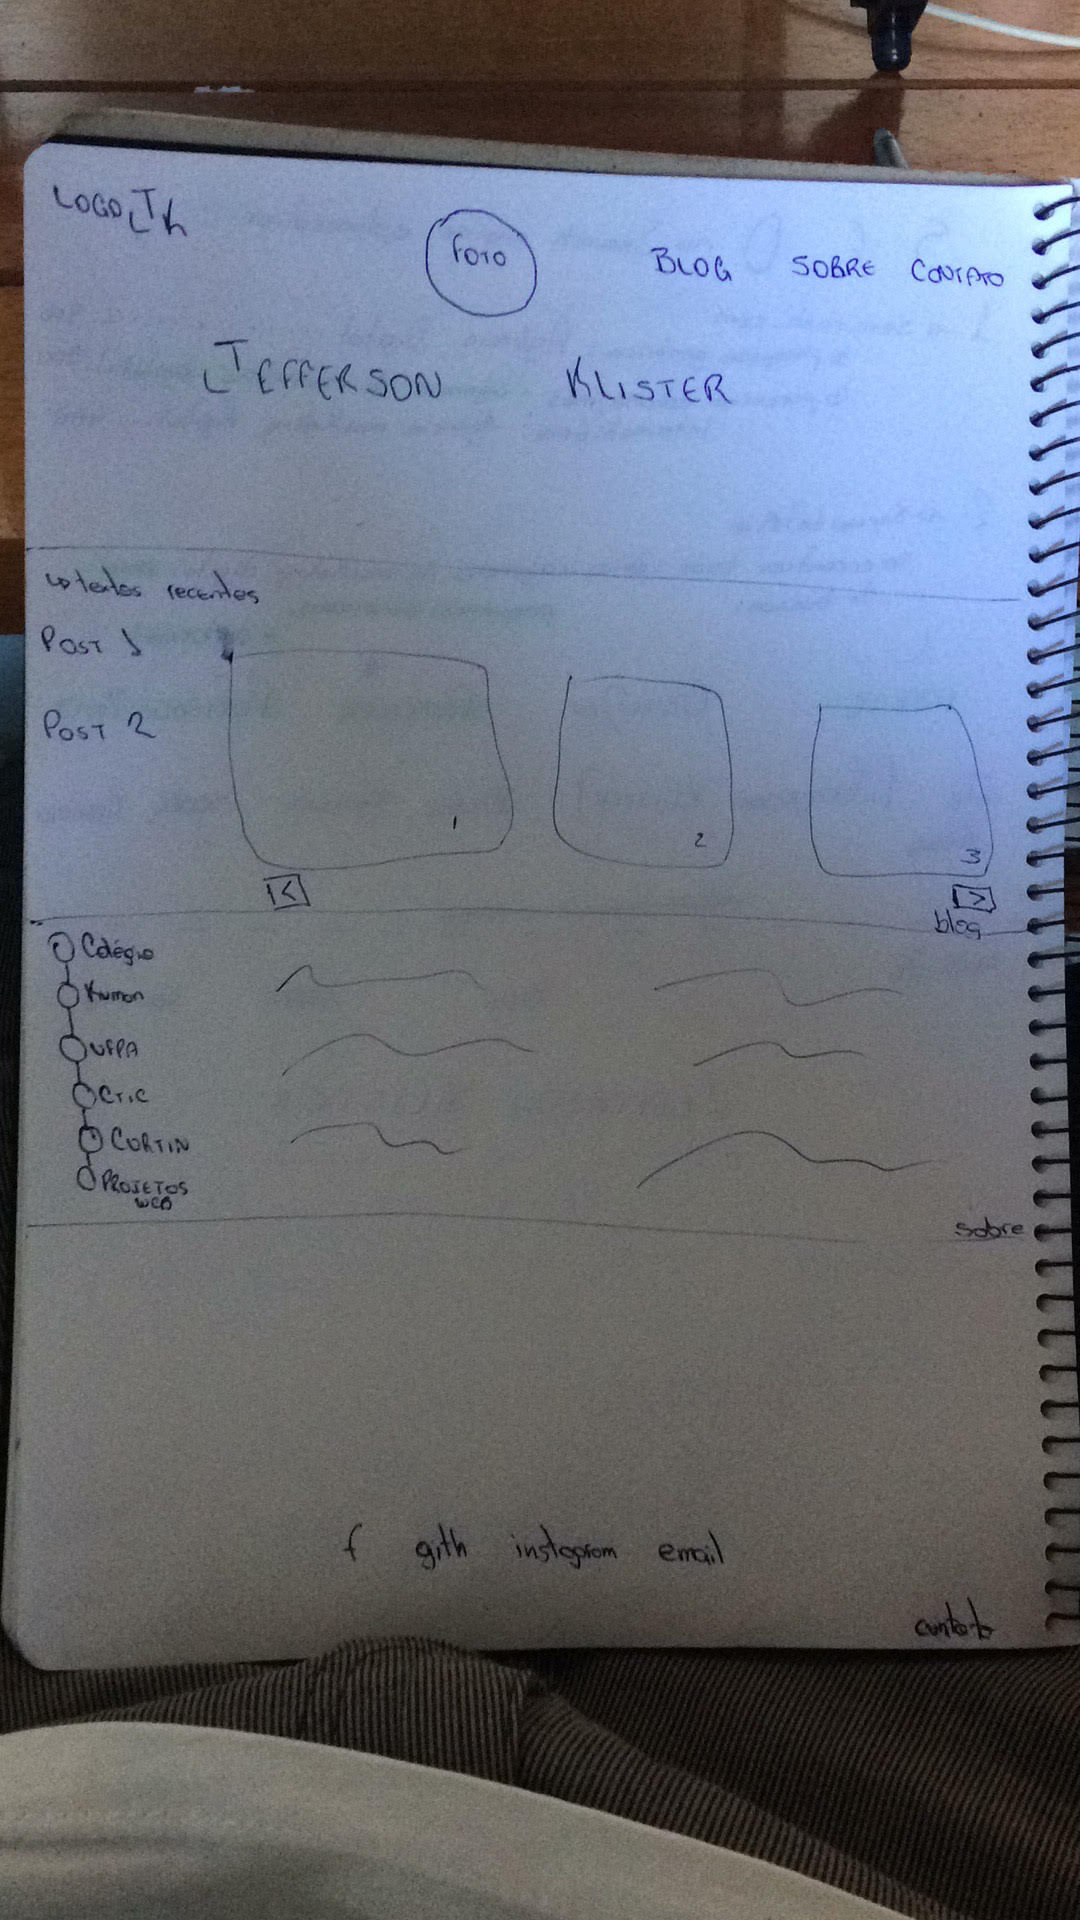 LOGO JK
FOTO
BLOG SOBRE CONTATO
JEFFERSON KLISTER
↳ textos recentes
POST 1
POST 2
1
2
3
<
>
blog
Colégio
Kumon
UFPA
CTIC
CORTIN
PROJETOS
WEB
sobre
f gith instagram email
contato